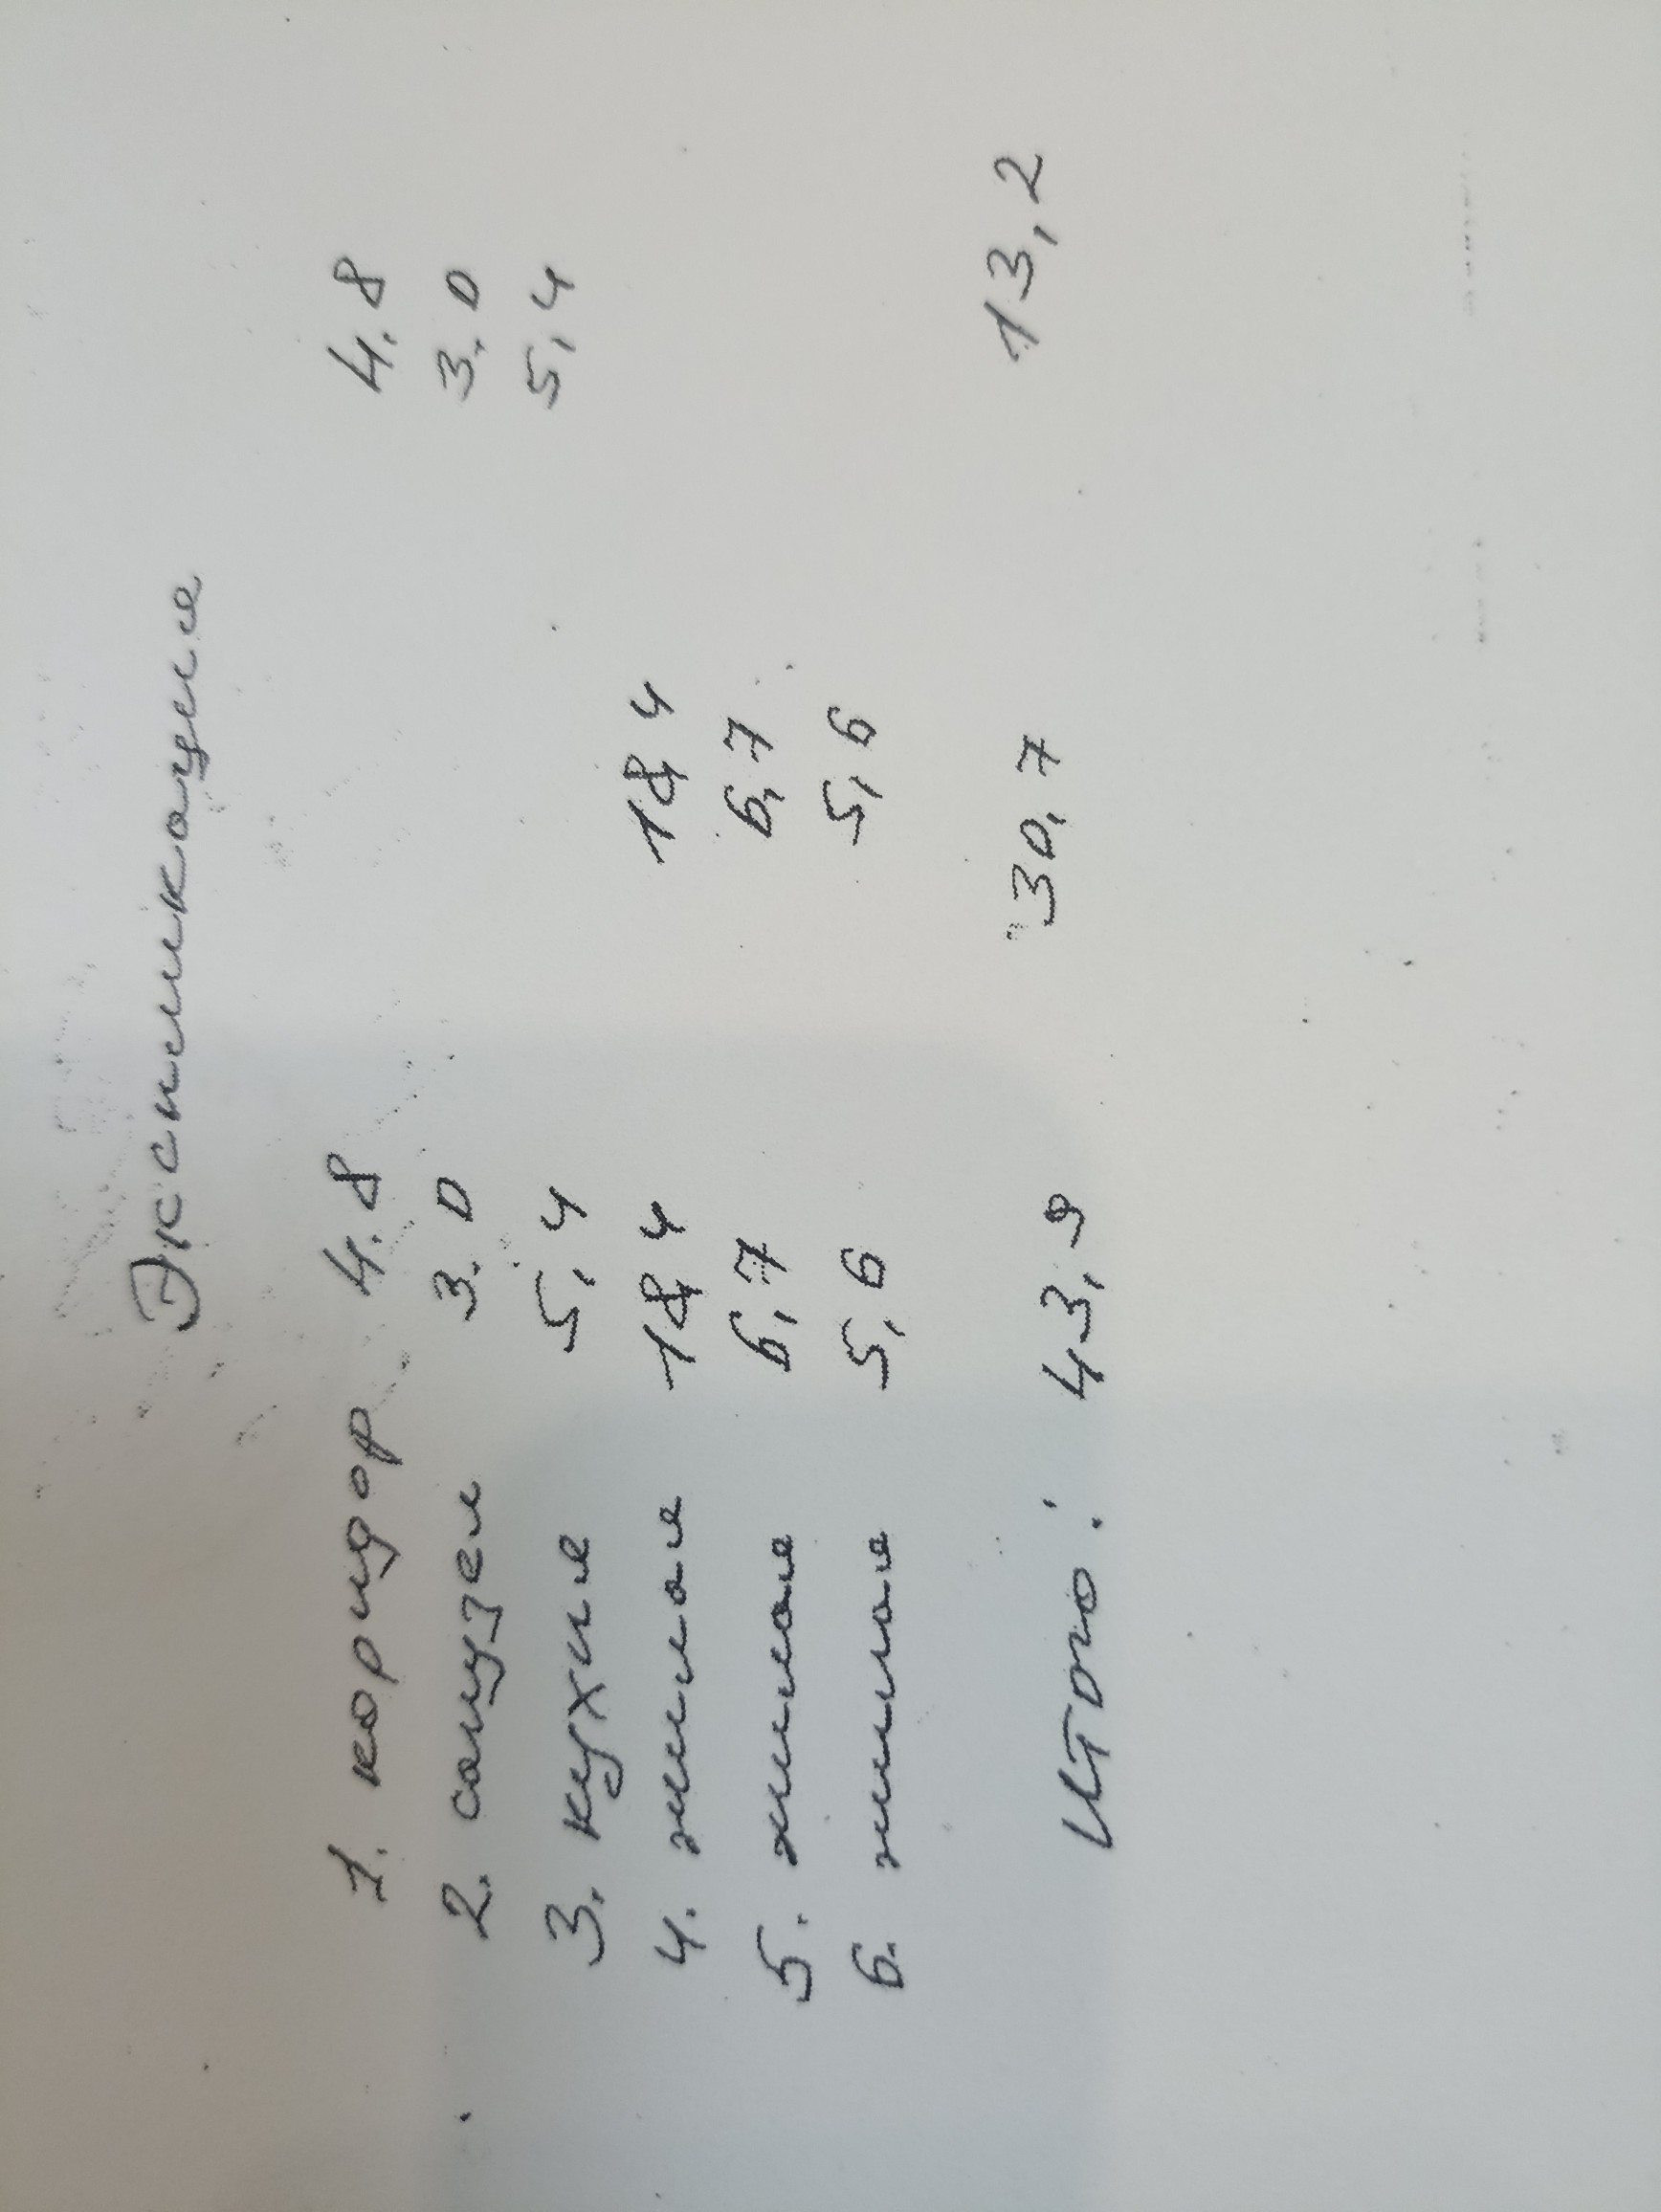 Экспликация
1. коридор 4.8 4.8
2. санузел 3.0 3.0
3. кухня 5,4 5,4
4. жилая 18,4 18,4
5. жилая 6,7 6,7
6. жилая 5,6 5,6
Итого: 43,9 30,7 13,2